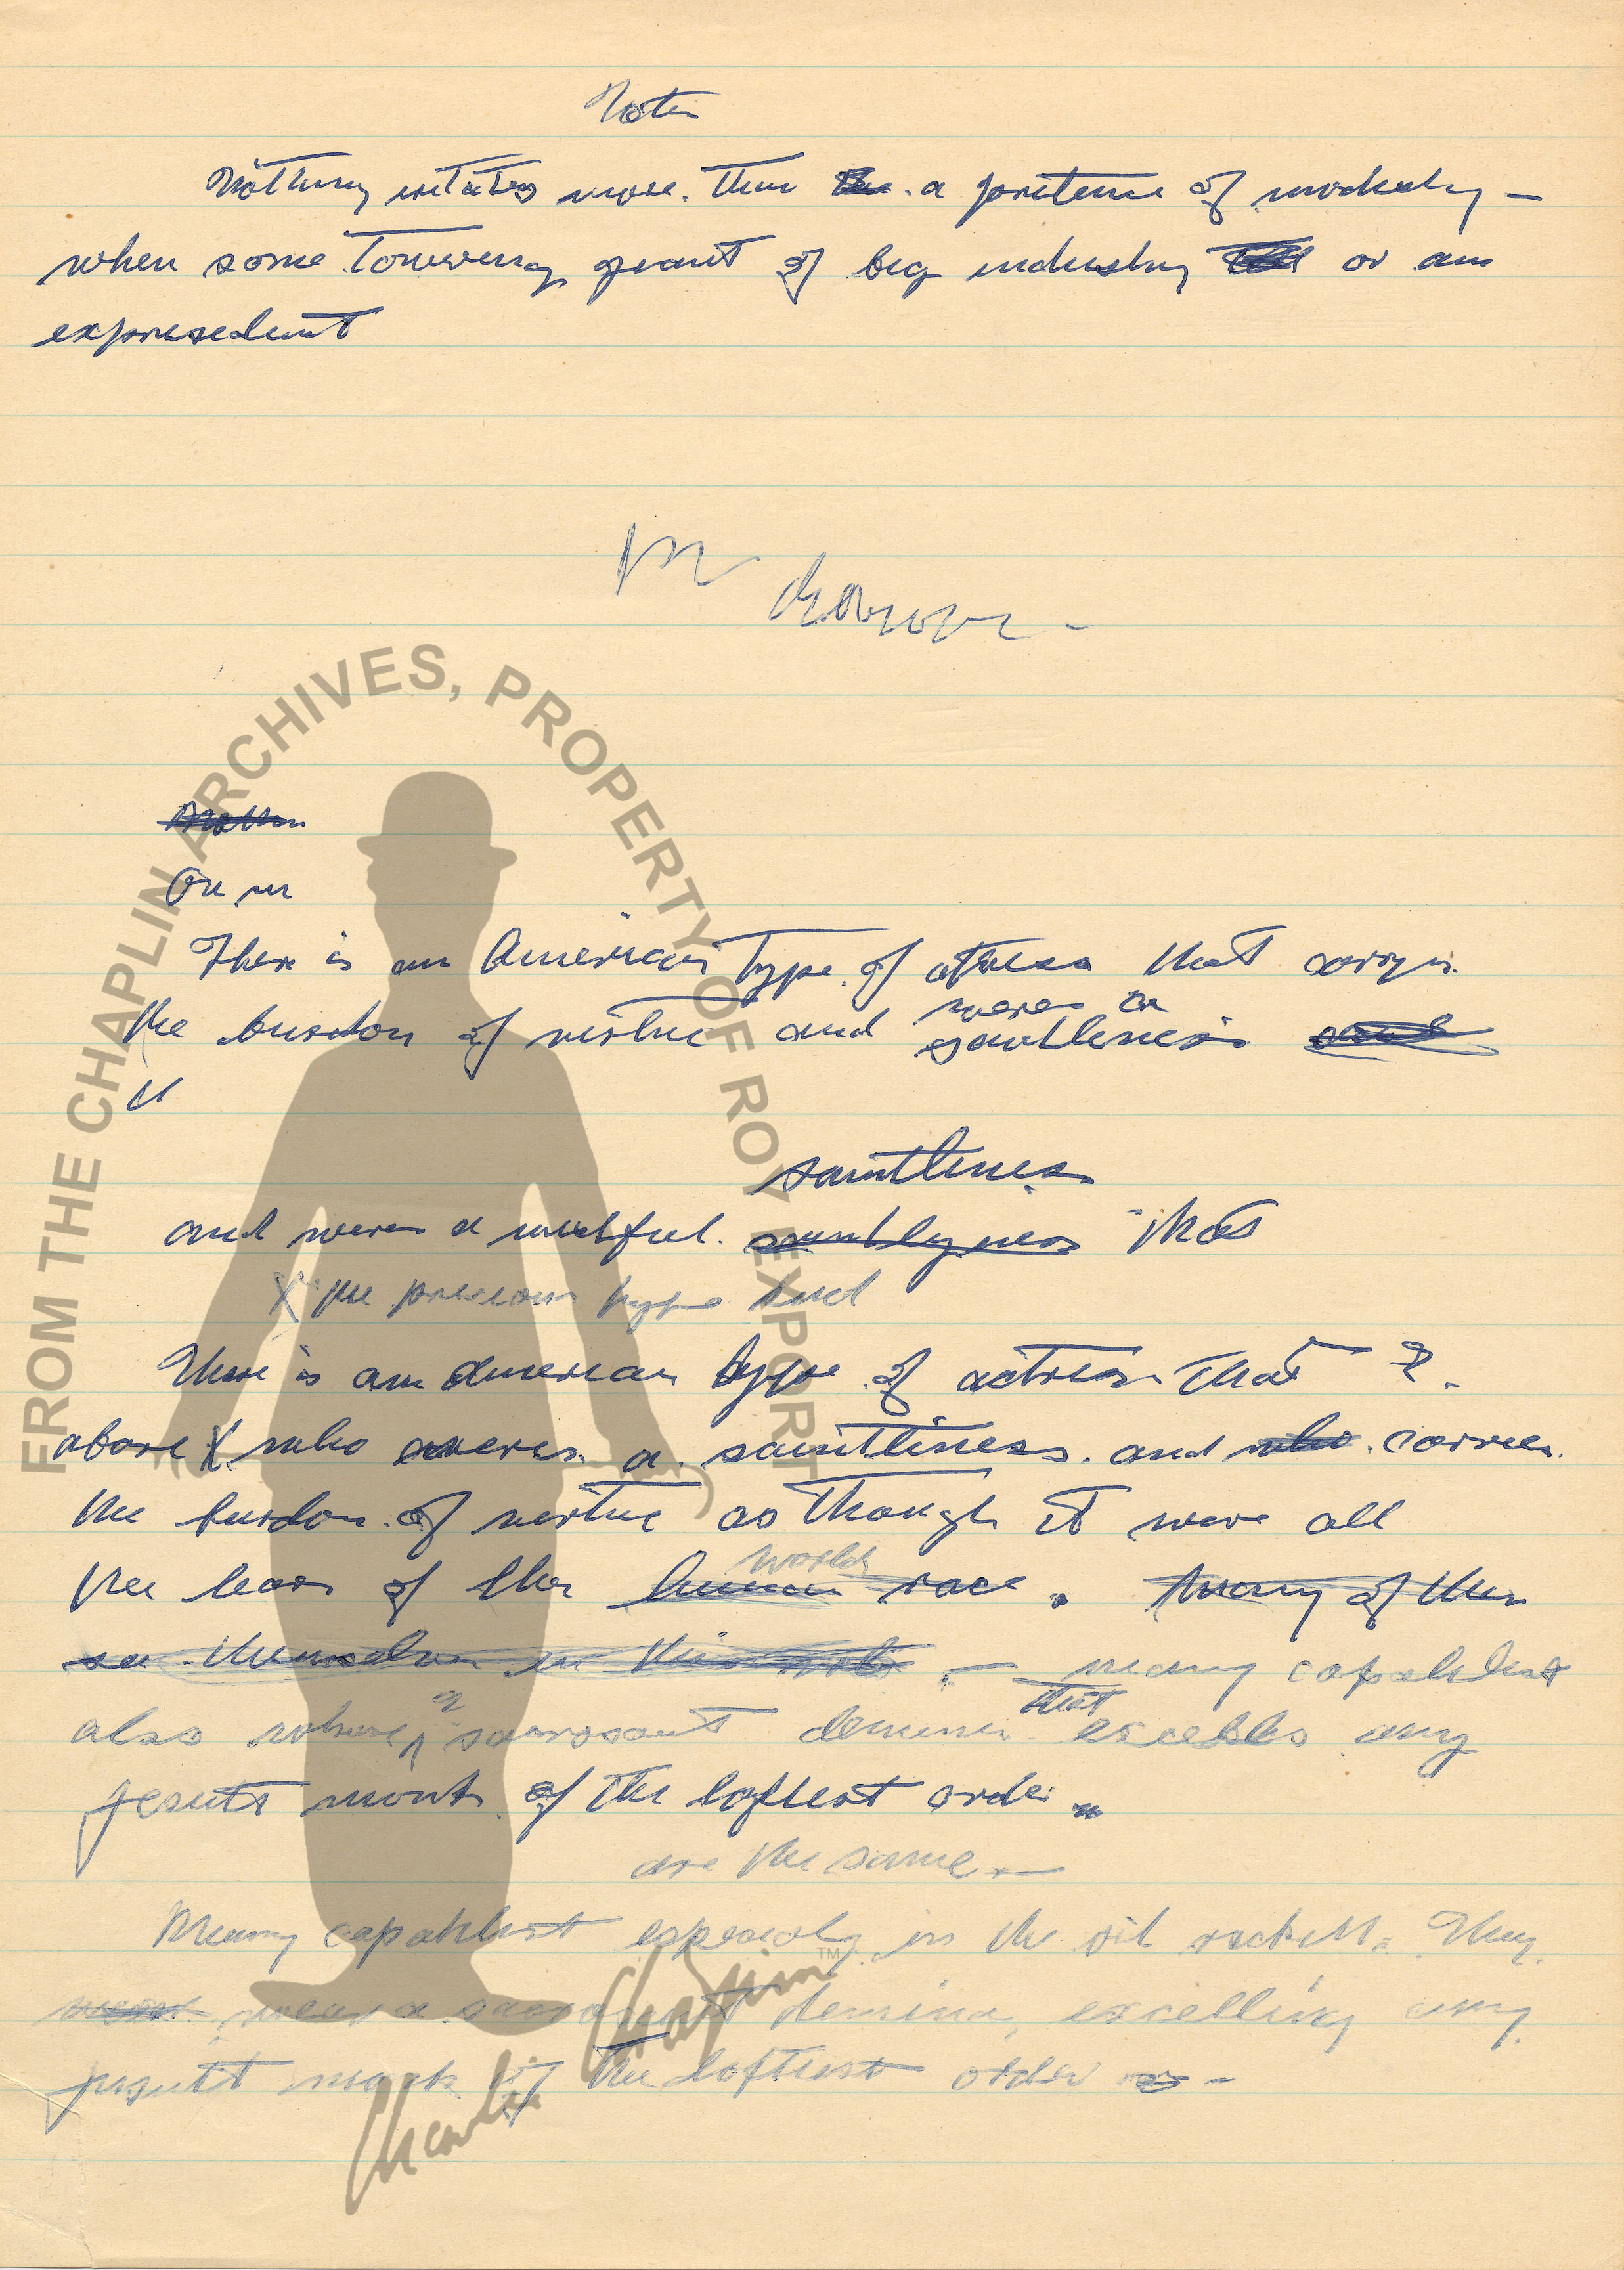 Notes
Nothing iritates more. than the a pretense of modesty —
when some Towering giant of big industry or an
expresedent
Mr
On m
There is an American Type of actress that carrys
wears a
the burdon of virtue and saintliness and
saintliness
and wears a that
X the precious type and
There is an American type of actress that ?
above X who wears a saintliness and who carries
the burdon of virtue as though it were all
world
the of the human race. Many of them
see themselves in this role — many capatilist
a that
also whose sacrosant demener excells any
jesuts monk of the loftest order
are the same —
Many capatilist especialy in the oil rackett. They
wear wear a sacrosant demina, excelling any
jesuitt monk of the loftiest order —
FROM THE CHAPLIN ARCHIVES, PROPERTY OF ROY EXPORT
Charlie Chaplin ™